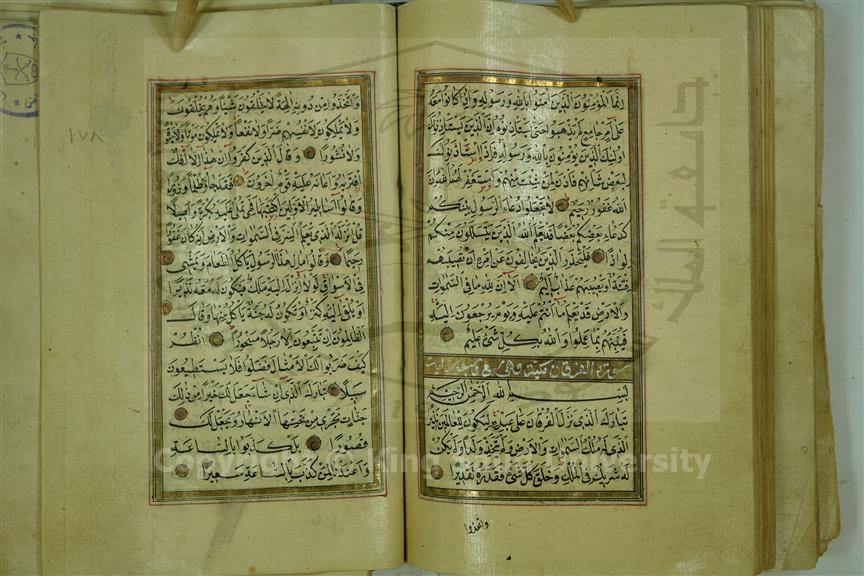 انما المؤمنون الذين امنوا بالله ورسوله واذا كانوا معه
على امر جامع لم يذهبوا حتى يستاذنوه ان الذين يستاذنونك
اولئك الذين يؤمنون بالله ورسوله فاذا استاذنوك
لبعض شانهم فاذن لمن شئت منهم واستغفر لهم الله ان
الله غفور رحيم لا تجعلوا دعاء الرسول بينكم
كدعاء بعضكم بعضا قد يعلم الله الذين يتسللون منكم
لواذا فليحذر الذين يخالفون عن امره ان تصيبهم
فتنة او يصيبهم عذاب اليم الا ان لله ما في السموات
والارض قد يعلم ما انتم عليه ويوم يرجعون اليه
فينبئهم بما عملوا والله بكل شئ عليم
سورة الفرقان مكية وهي سبع وسبعون ايات
بسم الله الرحمن الرحيم
تبارك الذي نزل الفرقان على عبده ليكون للعالمين نذيرا
الذي له ملك السموات والارض ولم يتخذ ولدا ولم يكن
له شريك في الملك وخلق كل شئ فقدره تقديرا
واتخذوا
واتخذوا من دونه الهة لا يخلقون شيئا وهم يخلقون
ولا يملكون لانفسهم ضرا ولا نفعا ولا يملكون موتا ولا حيوة
ولا نشورا وقال الذين كفروا ان هذا الا افك
افتريه واعانه عليه قوم اخرون فقد جاؤ ظلما وزورا
وقالوا اساطير الاولين اكتتبها فهي تملى عليه بكرة واصيلا
قل انزله الذي يعلم السر في السموات والارض انه كان غفورا
رحيما وقالوا مال هذا الرسول ياكل الطعام ويمشي
في الاسواق لولا انزل اليه ملك فيكون معه نذيرا
او يلقى اليه كنز او تكون له جنة ياكل منها وقال
الظالمون ان تتبعون الا رجلا مسحورا انظر
كيف ضربوا لك الامثال فضلوا فلا يستطيعون
سبيلا تبارك الذي ان شاء جعل لك خيرا من ذلك
جنات تجري من تحتها الانهار ويجعل لك
قصورا بل كذبوا بالساعة
واعتدنا لمن كذب بالساعة سعيرا
١٧٨
جامعة الملك
Copyright © King University